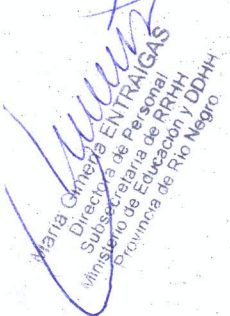 María Gimena ENTRAIGAS
Directora de Personal
Subsecretaria de RRHH
Ministerio de Educación y DDHH
Provincia de Río Negro